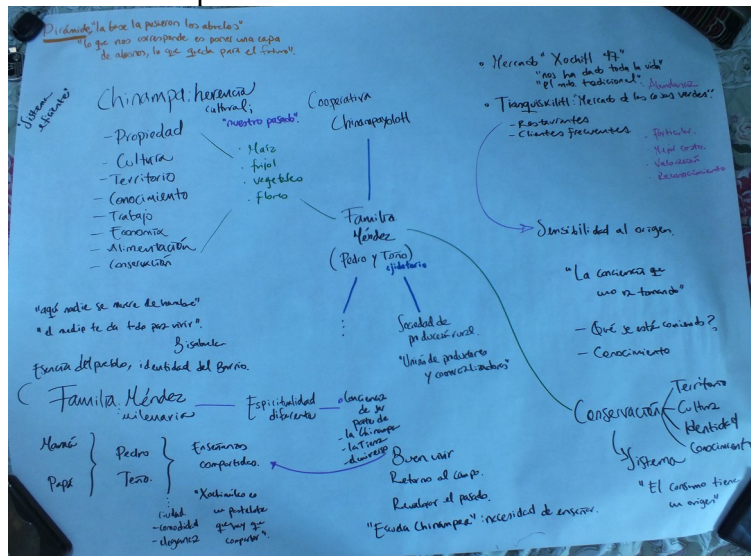 Pirámide, "la base la pusieron los abuelos"
"lo que nos corresponde es poner una capa
de abonos, lo que queda para el futuro".
"Sistema
eficiente"
Chinampa: herencia
cultural;
"nuestro pasado".
- Propiedad
- Cultura
- Territorio
- Conocimiento
- Trabajo
- Economía
- Alimentación
- Conservación
· Maíz
· frijol
· vegetales
· flores
Cooperativa
Chinampayolotl
Familia
Méndez
(Pedro y Toño)
ejidatario
Sociedad de
producción rural.
"Unión de productores
y comercializadores"
• Mercado "Xochitl
"nos ha dado toda la vida"
tradicional"
Abundancia
• Tianquiskilitl: Mercado de las cosas verdes"
- Restaurantes
- Clientes frecuentes
· Particular
· Mejor costo
· Valorización
· Reconocimiento
Sensibilidad al origen.
"La conciencia que
uno va tomando"
- Qué se está comiendo?
- Conocimiento
Conservación
Territorio
Cultura
Identidad
Conocimiento
Sistema
"El consumo tiene
un origen"
"aquí nadie se muere de hambre"
"el medio te da todo para vivir".
Bisabuelo
Esencia del pueblo, identidad del Barrio.
Familia Méndez
milenaria
Espiritualidad
diferente
Conciencia
de ser
parte de
- la chinampa
- la Tierra
- el universo
Mamá
Papá
Pedro
Toño.
Enseñanzas
compartidas.
ciudad
- comodidad
- elegancia
"Xochimilco es
un portalote
que hay que
compartir".
Buen vivir
Retorno al campo.
Revalorar el pasado.
"Escuela Chinampera": necesidad de enseñar.